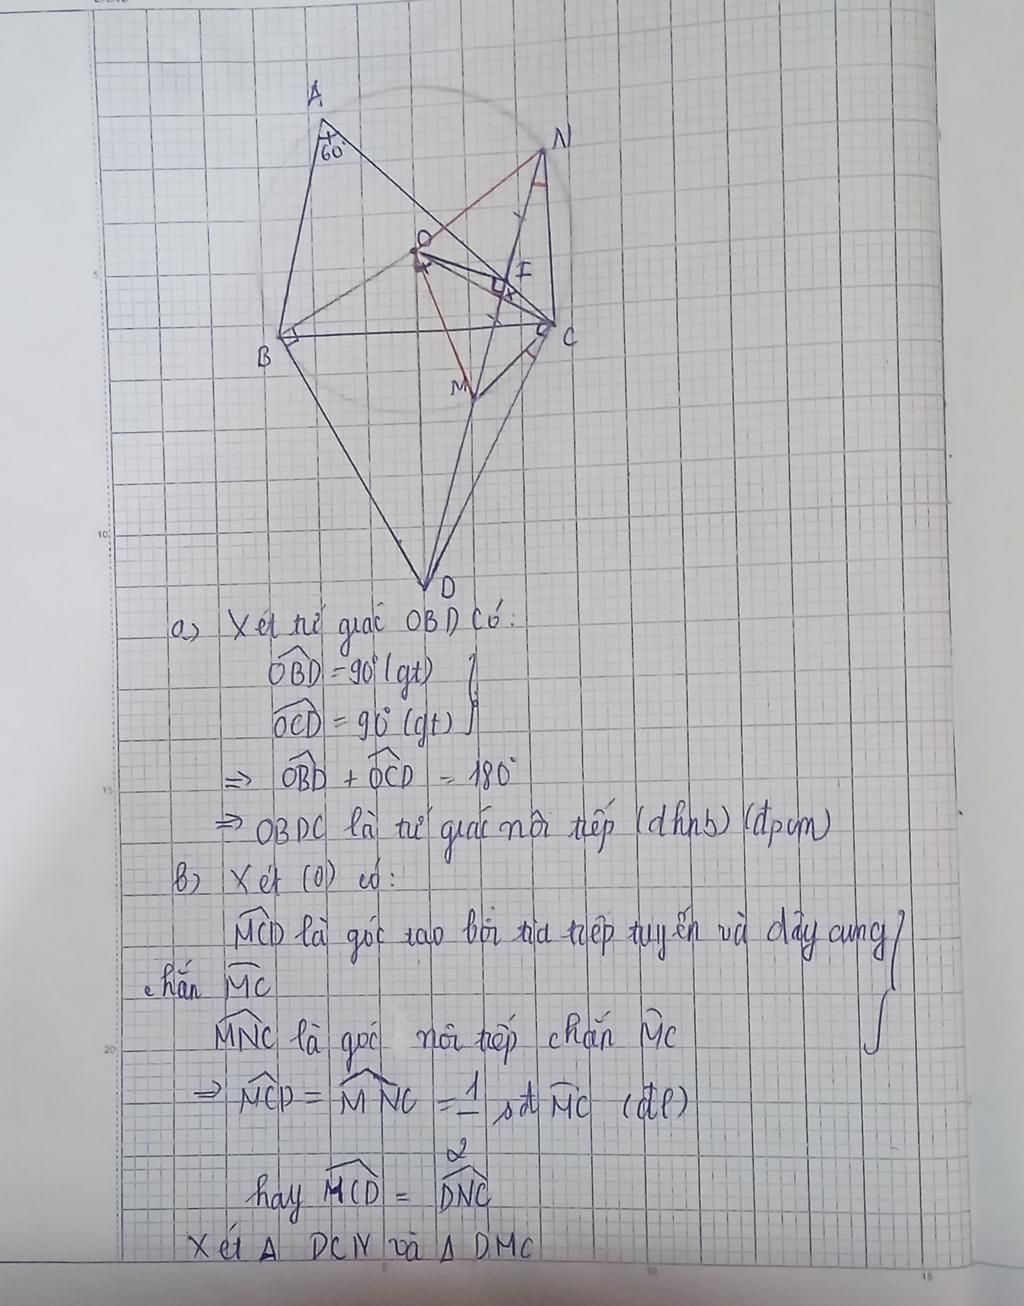 A
60°
N
O
I
B
C
M
D
a) Xét tứ giác OBD Có:
OBD = 90° (gt)
OCD = 90° (gt)
⇒ OBD + OCD = 180°
⇒ OBDC là tứ giác nội tiếp (dhnb) (đpcm)
b) Xét (O) có:
MCD là góc tạo bởi tia tiếp tuyến và dây cung
chắn MC
MNC là góc nội tiếp chắn MC
⇒ MCD = MNC = 1/2 sđ MC (đl)
hay MCD = DNC
Xét Δ DCN và Δ DMC
5
10
15
20
5
10
15